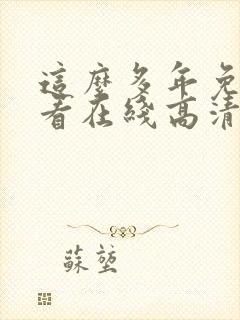 這麼多年免
看在綫高清
蘇堃